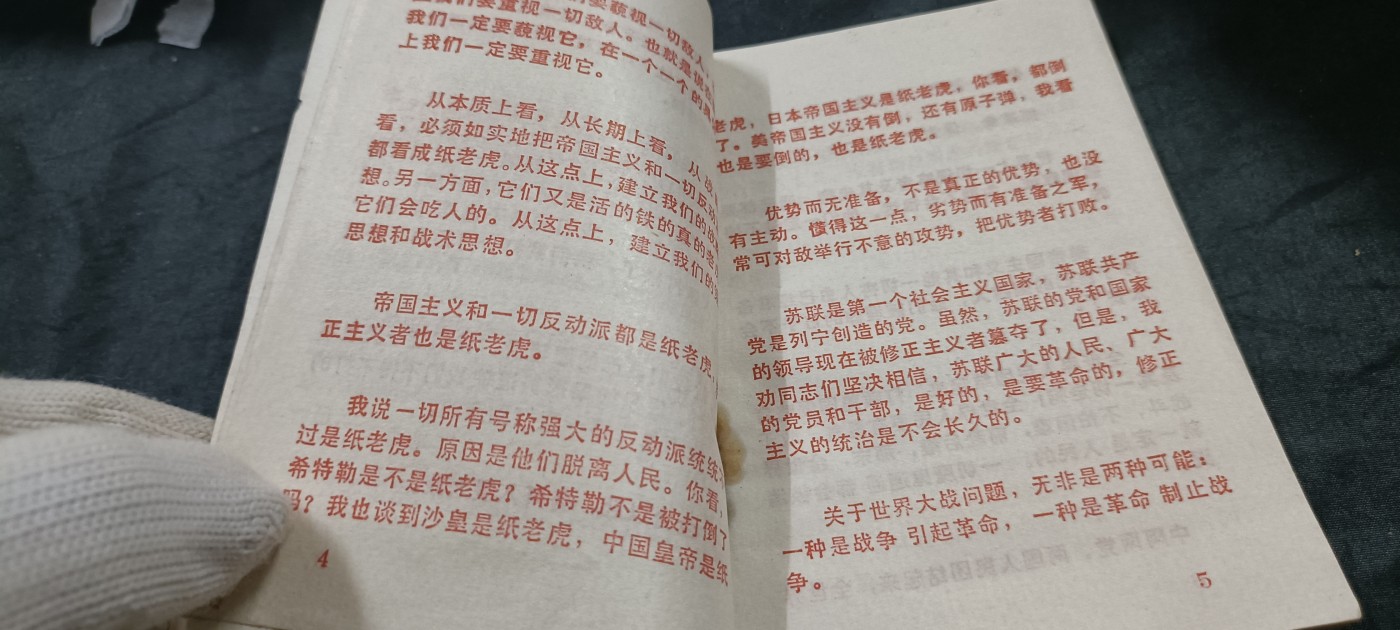 要藐视一切敌人，
我们要重视一切敌人。也就是说
我们一定要藐视它，在一个一个的
上我们一定要重视它。
从本质上看，从长期上看，从战
看，必须如实地把帝国主义和一切反动
都看成纸老虎。从这点上，建立我们的战
想。另一方面，它们又是活的铁的真的老
它们会吃人的。从这点上，建立我们的
思想和战术思想。
帝国主义和一切反动派都是纸老虎，
正主义者也是纸老虎。
我说一切所有号称强大的反动派统统
过是纸老虎。原因是他们脱离人民。你看，
希特勒是不是纸老虎？希特勒不是被打倒了
吗？我也谈到沙皇是纸老虎，中国皇帝是纸
4
老虎，日本帝国主义是纸老虎，你看，都倒
了。美帝国主义没有倒，还有原子弹，我看
也是要倒的，也是纸老虎。
优势而无准备，不是真正的优势，也没
有主动。懂得这一点，劣势而有准备之军，
常可对敌举行不意的攻势，把优势者打败。
苏联是第一个社会主义国家，苏联共产
党是列宁创造的党。虽然，苏联的党和国家
的领导现在被修正主义者篡夺了，但是，我
劝同志们坚决相信，苏联广大的人民、广大
的党员和干部，是好的，是要革命的，修正
主义的统治是不会长久的。
关于世界大战问题，无非是两种可能：
一种是战争 引起革命，一种是革命 制止战
争。
5